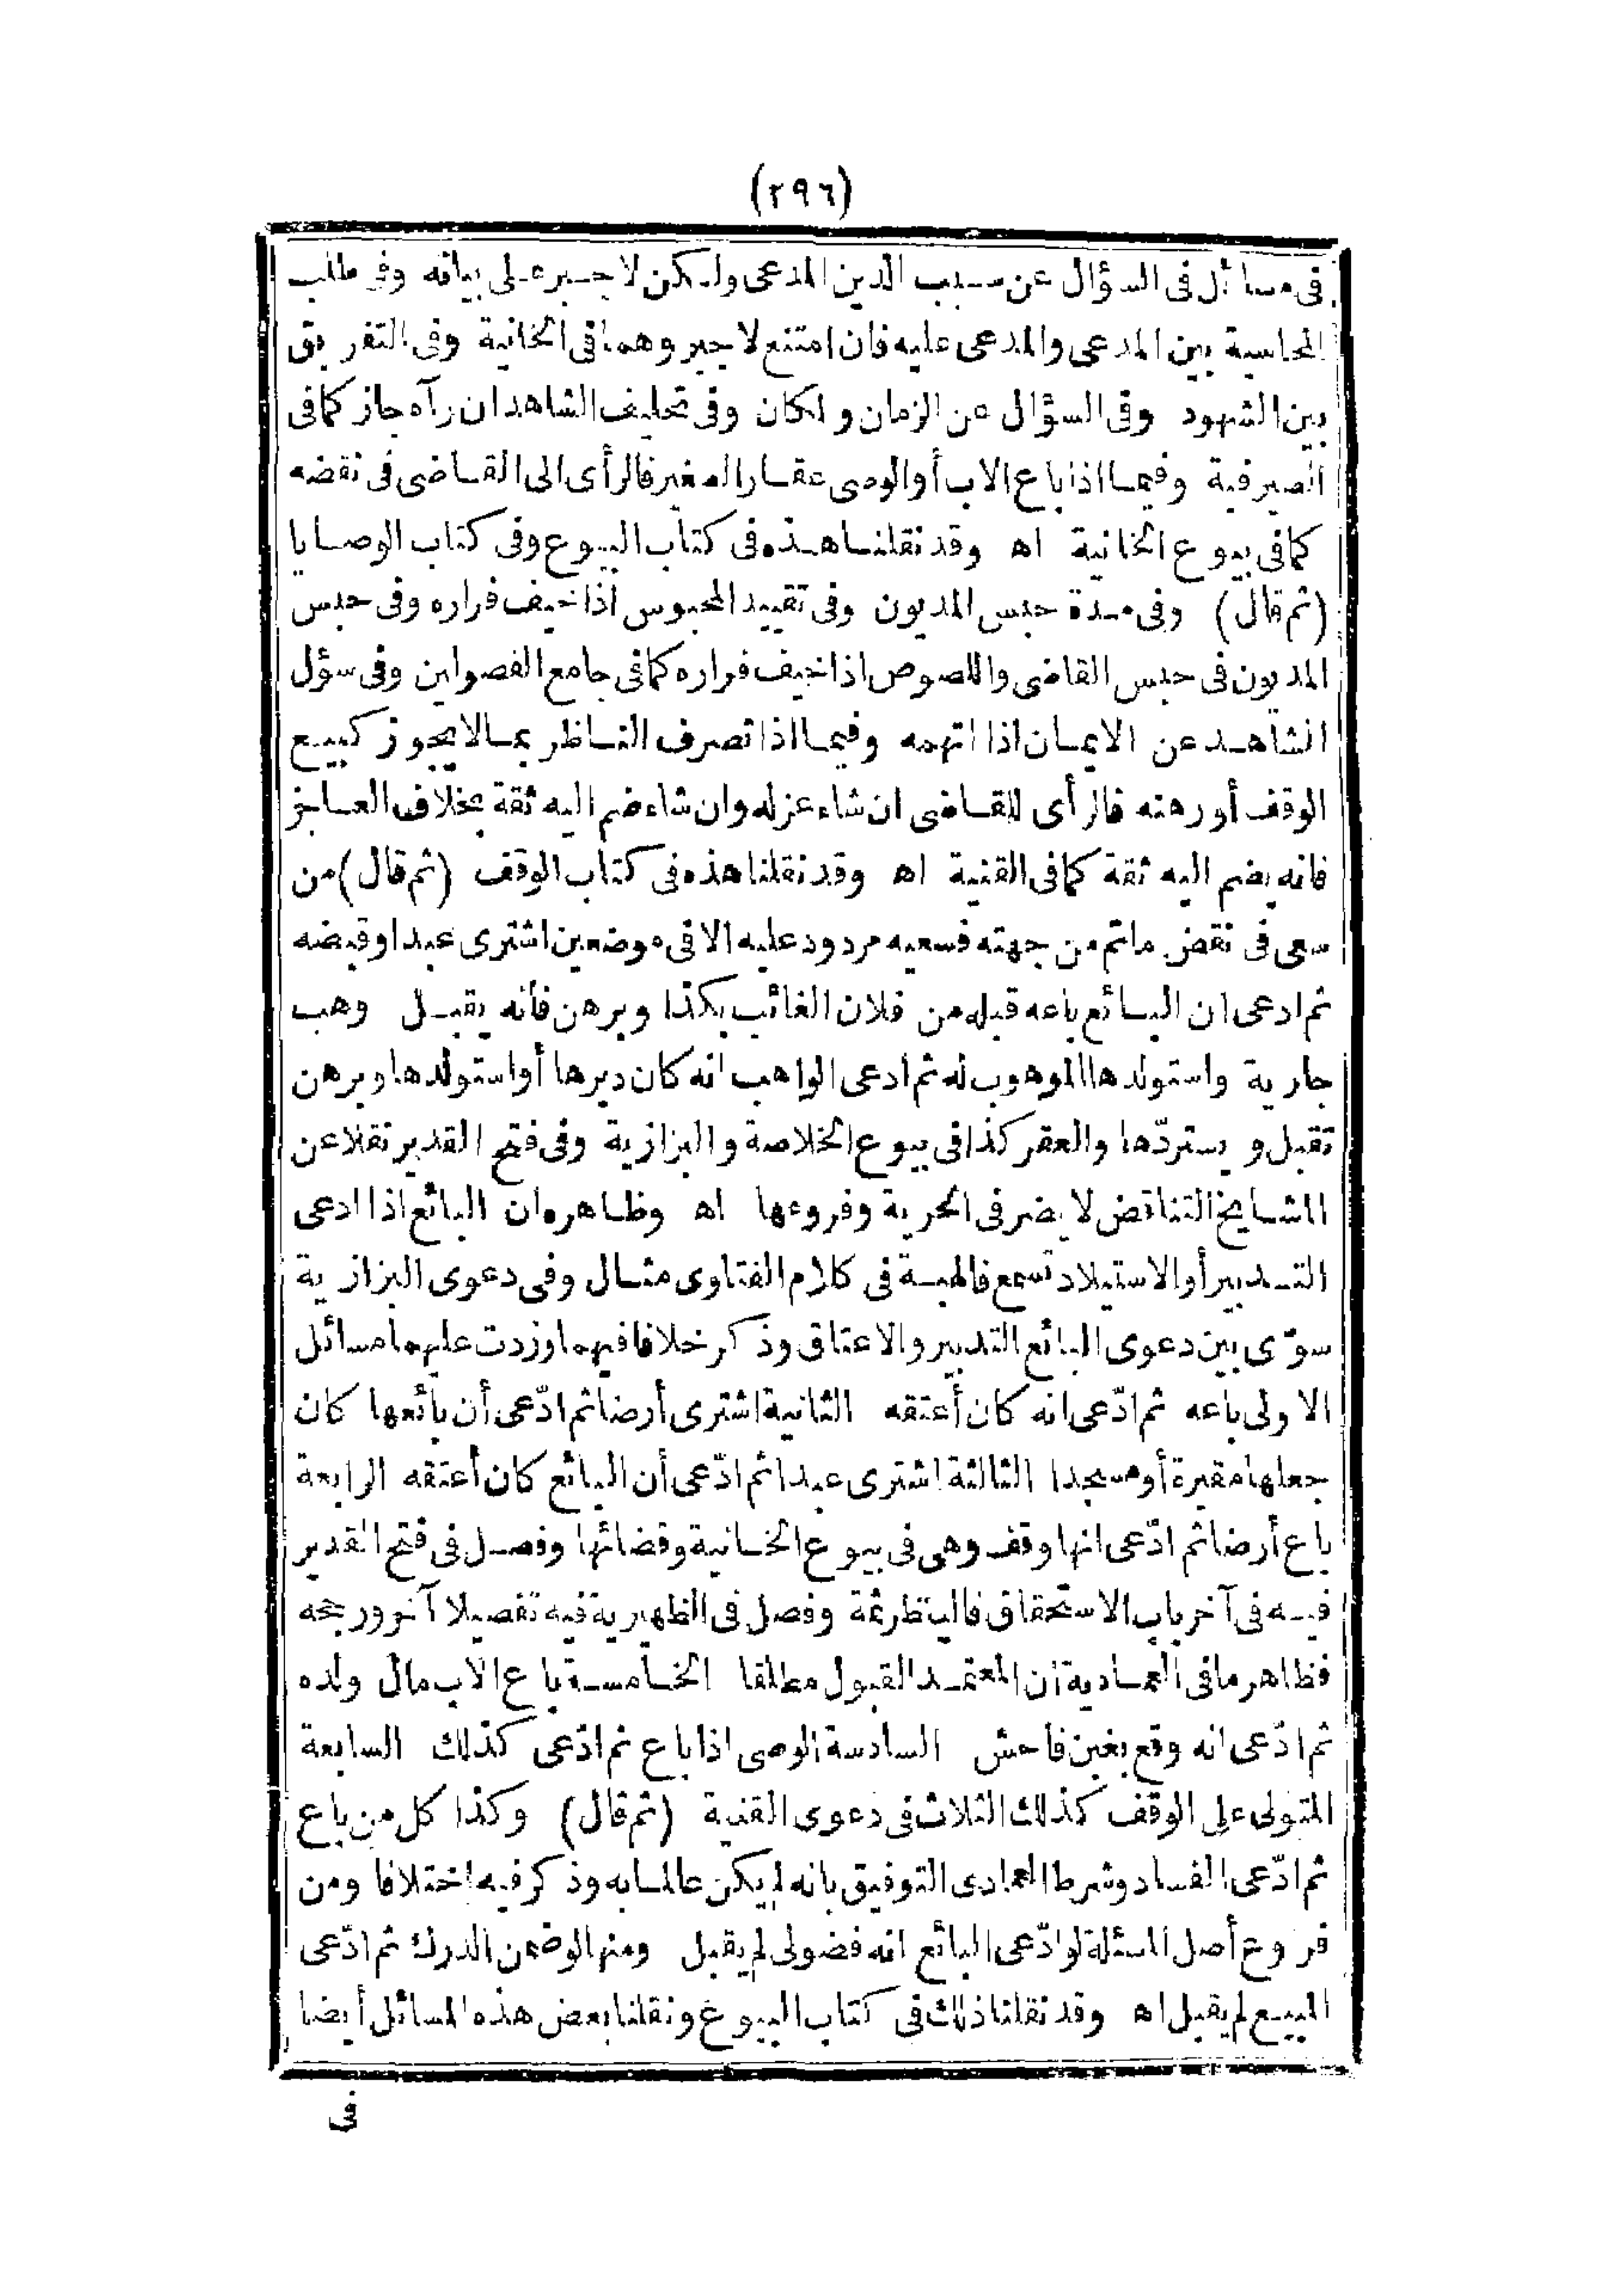 (٢٩٦)
فى مسائل فى السؤال عن سبب الدين المدعى ولكن لا جبر على بيانه وفى طلب
المحاسبة بين المدعى والمدعى عليه فان امتنع لا جبر وهما فى الخانية وفى التفريق
بين الشهود وفى السؤال عن الزمان والمكان وفى تحليف الشاهد ان رآه جاز كما فى
الصيرفية وفيما اذا باع الاب أو الوصى عقار الصغير فالرأى الى القاضى فى نقضه
كما فى بيوع الخانية اه وقد نقلنا هذه فى كتاب البيوع وفى كتاب الوصايا
(ثم قال) وفى مدة حبس المديون وفى تقييد المحبوس اذا خيف فراره وفى حبس
المديون فى حبس القاضى واللصوص اذا خيف فراره كما فى جامع الفصولين وفى سؤل
الشاهد عن الايمان اذا اتهمه وفيما اذا تصرف الناظر بما لا يجوز كبيع
الوقف أو رهنه فالرأى للقاضى ان شاء عزله وان شاء ضم اليه ثقة بخلاف العاجز
فانه يضم اليه ثقة كما فى القنية اه وقد نقلنا هذه فى كتاب الوقف (ثم قال) من
سعى فى نقض ما تم من جهته فسعيه مردود عليه الا فى موضعين اشترى عبدا وقبضه
ثم ادعى ان البائع باعه قبله من فلان الغائب بكذا وبرهن فانه يقبل وهب
جارية واستولدها الموهوب له ثم ادعى الواهب انه كان دبرها أو استولدها وبرهن
تقبل ويستردّها والعقر كذا فى بيوع الخلاصة والبزازية وفى فتح القدير نقلا عن
المشايخ التناقض لا يضر فى الحرية وفروعها اه وظاهره ان البائع اذا ادعى
التدبير أو الاستيلاد تسمع فالهبة فى كلام الفتاوى مثال وفى دعوى البزازية
سوّى بين دعوى البائع التدبير والاعتاق وذكر خلافا فيهما وزدت عليهما مسائل
الاولى باعه ثم ادّعى انه كان أعتقه الثانية اشترى أرضا ثم ادّعى أن بائعها كان
جعلها مقبرة أو مسجدا الثالثة اشترى عبدا ثم ادّعى أن البائع كان أعتقه الرابعة
باع أرضا ثم ادّعى انها وقف وهى فى بيوع الخانية وقضائها وفصل فى فتح القدير
فيه فى آخر باب الاستحقاق فالينظر ثمة وفصل فى الظهيرية فيه تفصيلا آخر ورجحه
فظاهر ما فى العمادية ان المعتمد القبول مطلقا الخامسة باع الاب مال ولده
ثم ادّعى انه وقع بغبن فاحش السادسة الوصى اذا باع ثم ادّعى كذلك السابعة
المتولى على الوقف كذلك الثلاث فى دعوى القنية (ثم قال) وكذا كل من باع
ثم ادّعى الفساد وشرط العمادى التوفيق بانه لم يكن عالما به وذكر فيه اختلافا ومن
فروع أصل المسئلة لو ادّعى البائع انه فضولى لم يقبل ومنها لو ضمن الدرك ثم ادّعى
المبيع لم يقبل اه وقد نقلنا ذلك فى كتاب البيوع ونقلنا بعض هذه المسائل أيضا
فى